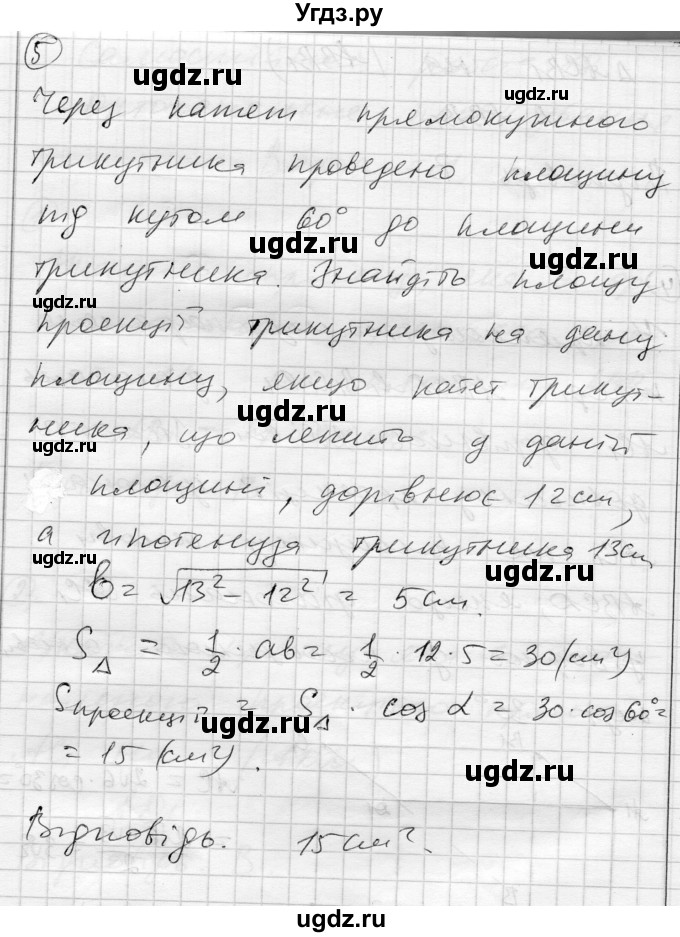 Угдз.ру
5
Через катет прямокутного
трикутника проведено площину
під кутом 60° до площини
трикутника. Знайдіть площу
проекції трикутника на дану
площину, якщо катет трикут-
ника, що лежить у даній
площині, дорівнює 12 см,
а гіпотенуза трикутника 13см
b = √13² - 12² = 5 см.
S△ = 1/2 · ab = 1/2 · 12 · 5 = 30 (см²)
Sпроекції = S△ · cos α = 30 · cos 60° =
= 15 (см²).
Відповідь. 15 см².
ugdz.ru
ugdz.ru
ugdz.ru
ugdz.ru
ugdz.ru
ugdz.ru
ugdz.ru
ugdz.ru
ugdz.ru
ugdz.ru
ugdz.ru
ugdz.ru
ugdz.ru